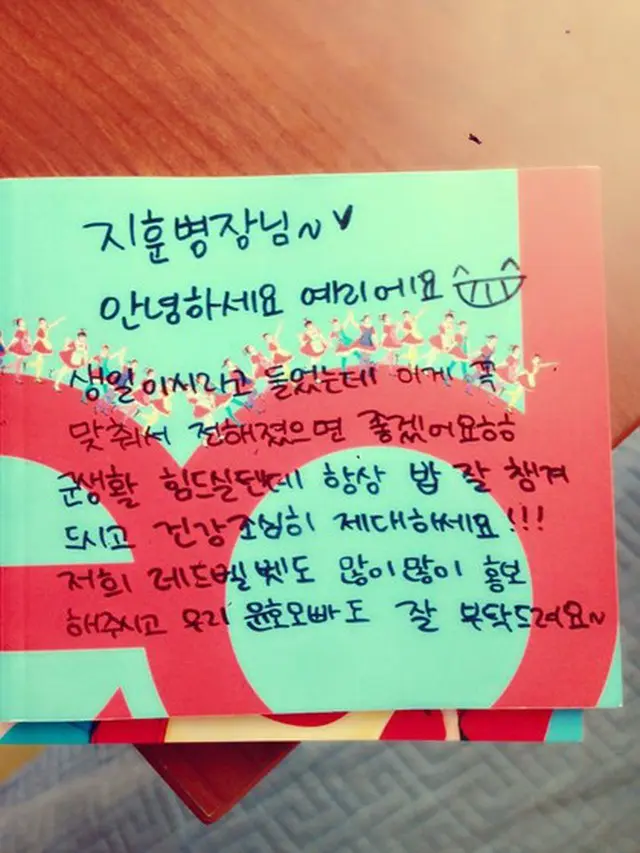 지훈병장님~♥
안녕하세요 예리에요
생일이시라고 들었는데 이게 꼭
맞춰서 전해졌으면 좋겠어요ㅎㅎ
군생활 힘드실텐데 항상 밥 잘 챙겨
드시고 건강조심히 제대하세요!!!
저희 레드벨벳도 많이많이 홍보
해주시고 우리 윤호오빠도 잘 부탁드려요~